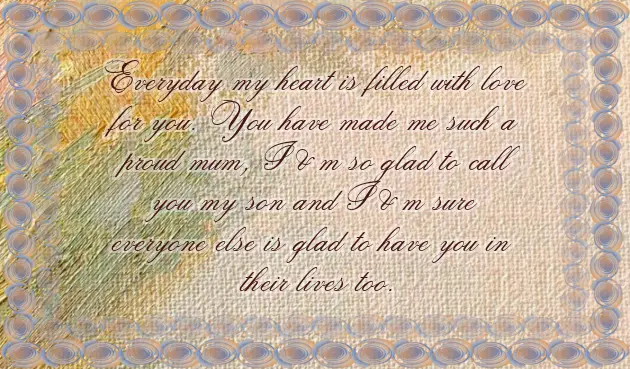 Everyday my heart is filled with love
for you. You have made me such a
proud mum, I&m so glad to call
you my son and I&m sure
everyone else is glad to have you in
their lives too.